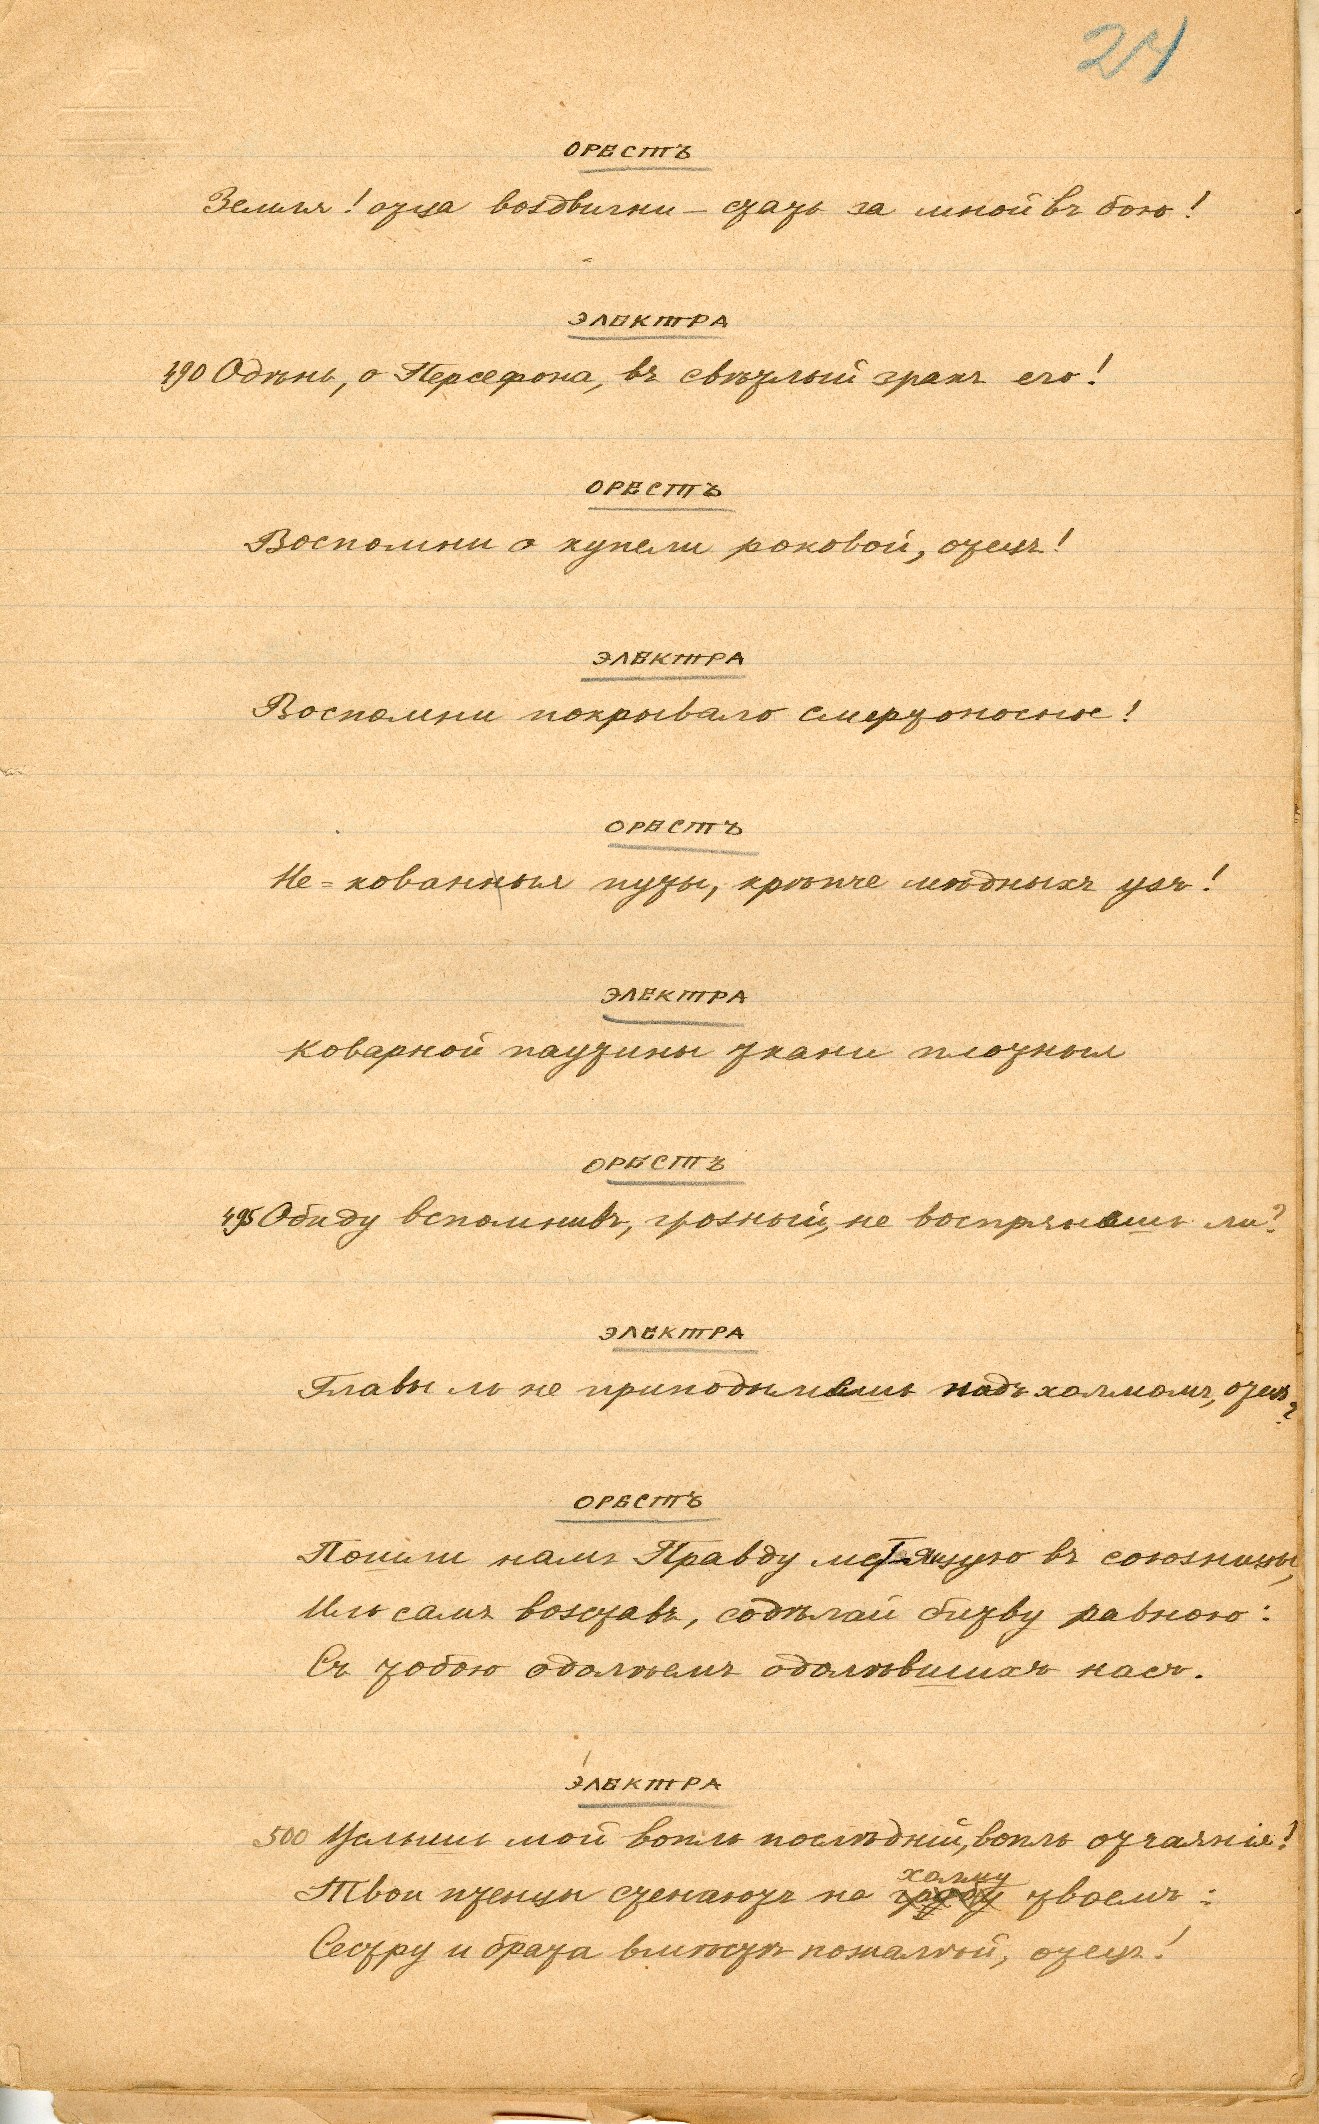 24
ОРЕСТЪ
Земля! отца воздвигни – стать за мной въ бою!
ЭЛЕКТРА
490 Одѣнь, о Персефона, въ свѣтлый зракъ его!
ОРЕСТЪ
Воспомни о купели роковой, отецъ!
ЭЛЕКТРА
Воспомни покрывало смертоносное!
ОРЕСТЪ
Не-кованныя путы, крѣпче мѣдныхъ узъ!
ЭЛЕКТРА
Коварной паутины ткани плотныя
ОРЕСТЪ
495 Обиду вспомнивъ, грозный, не воспрянешь ли?
ЭЛЕКТРА
Главы ль не приподымешь надъ холмомъ, отецъ?
ОРЕСТЪ
Пошли намъ Правду мстящую въ союзницы,
Иль самъ возставъ, содѣлай битву равною:
Съ тобою одолѣемъ одолѣвшихъ насъ.
ЭЛЕКТРА
500 Услышь мой вопль послѣдній, вопль отчаянія!
холму
Твои птенцы стенаютъ на гробу твоемъ:
Сестру и брата вмѣстѣ пожалѣй, отецъ!